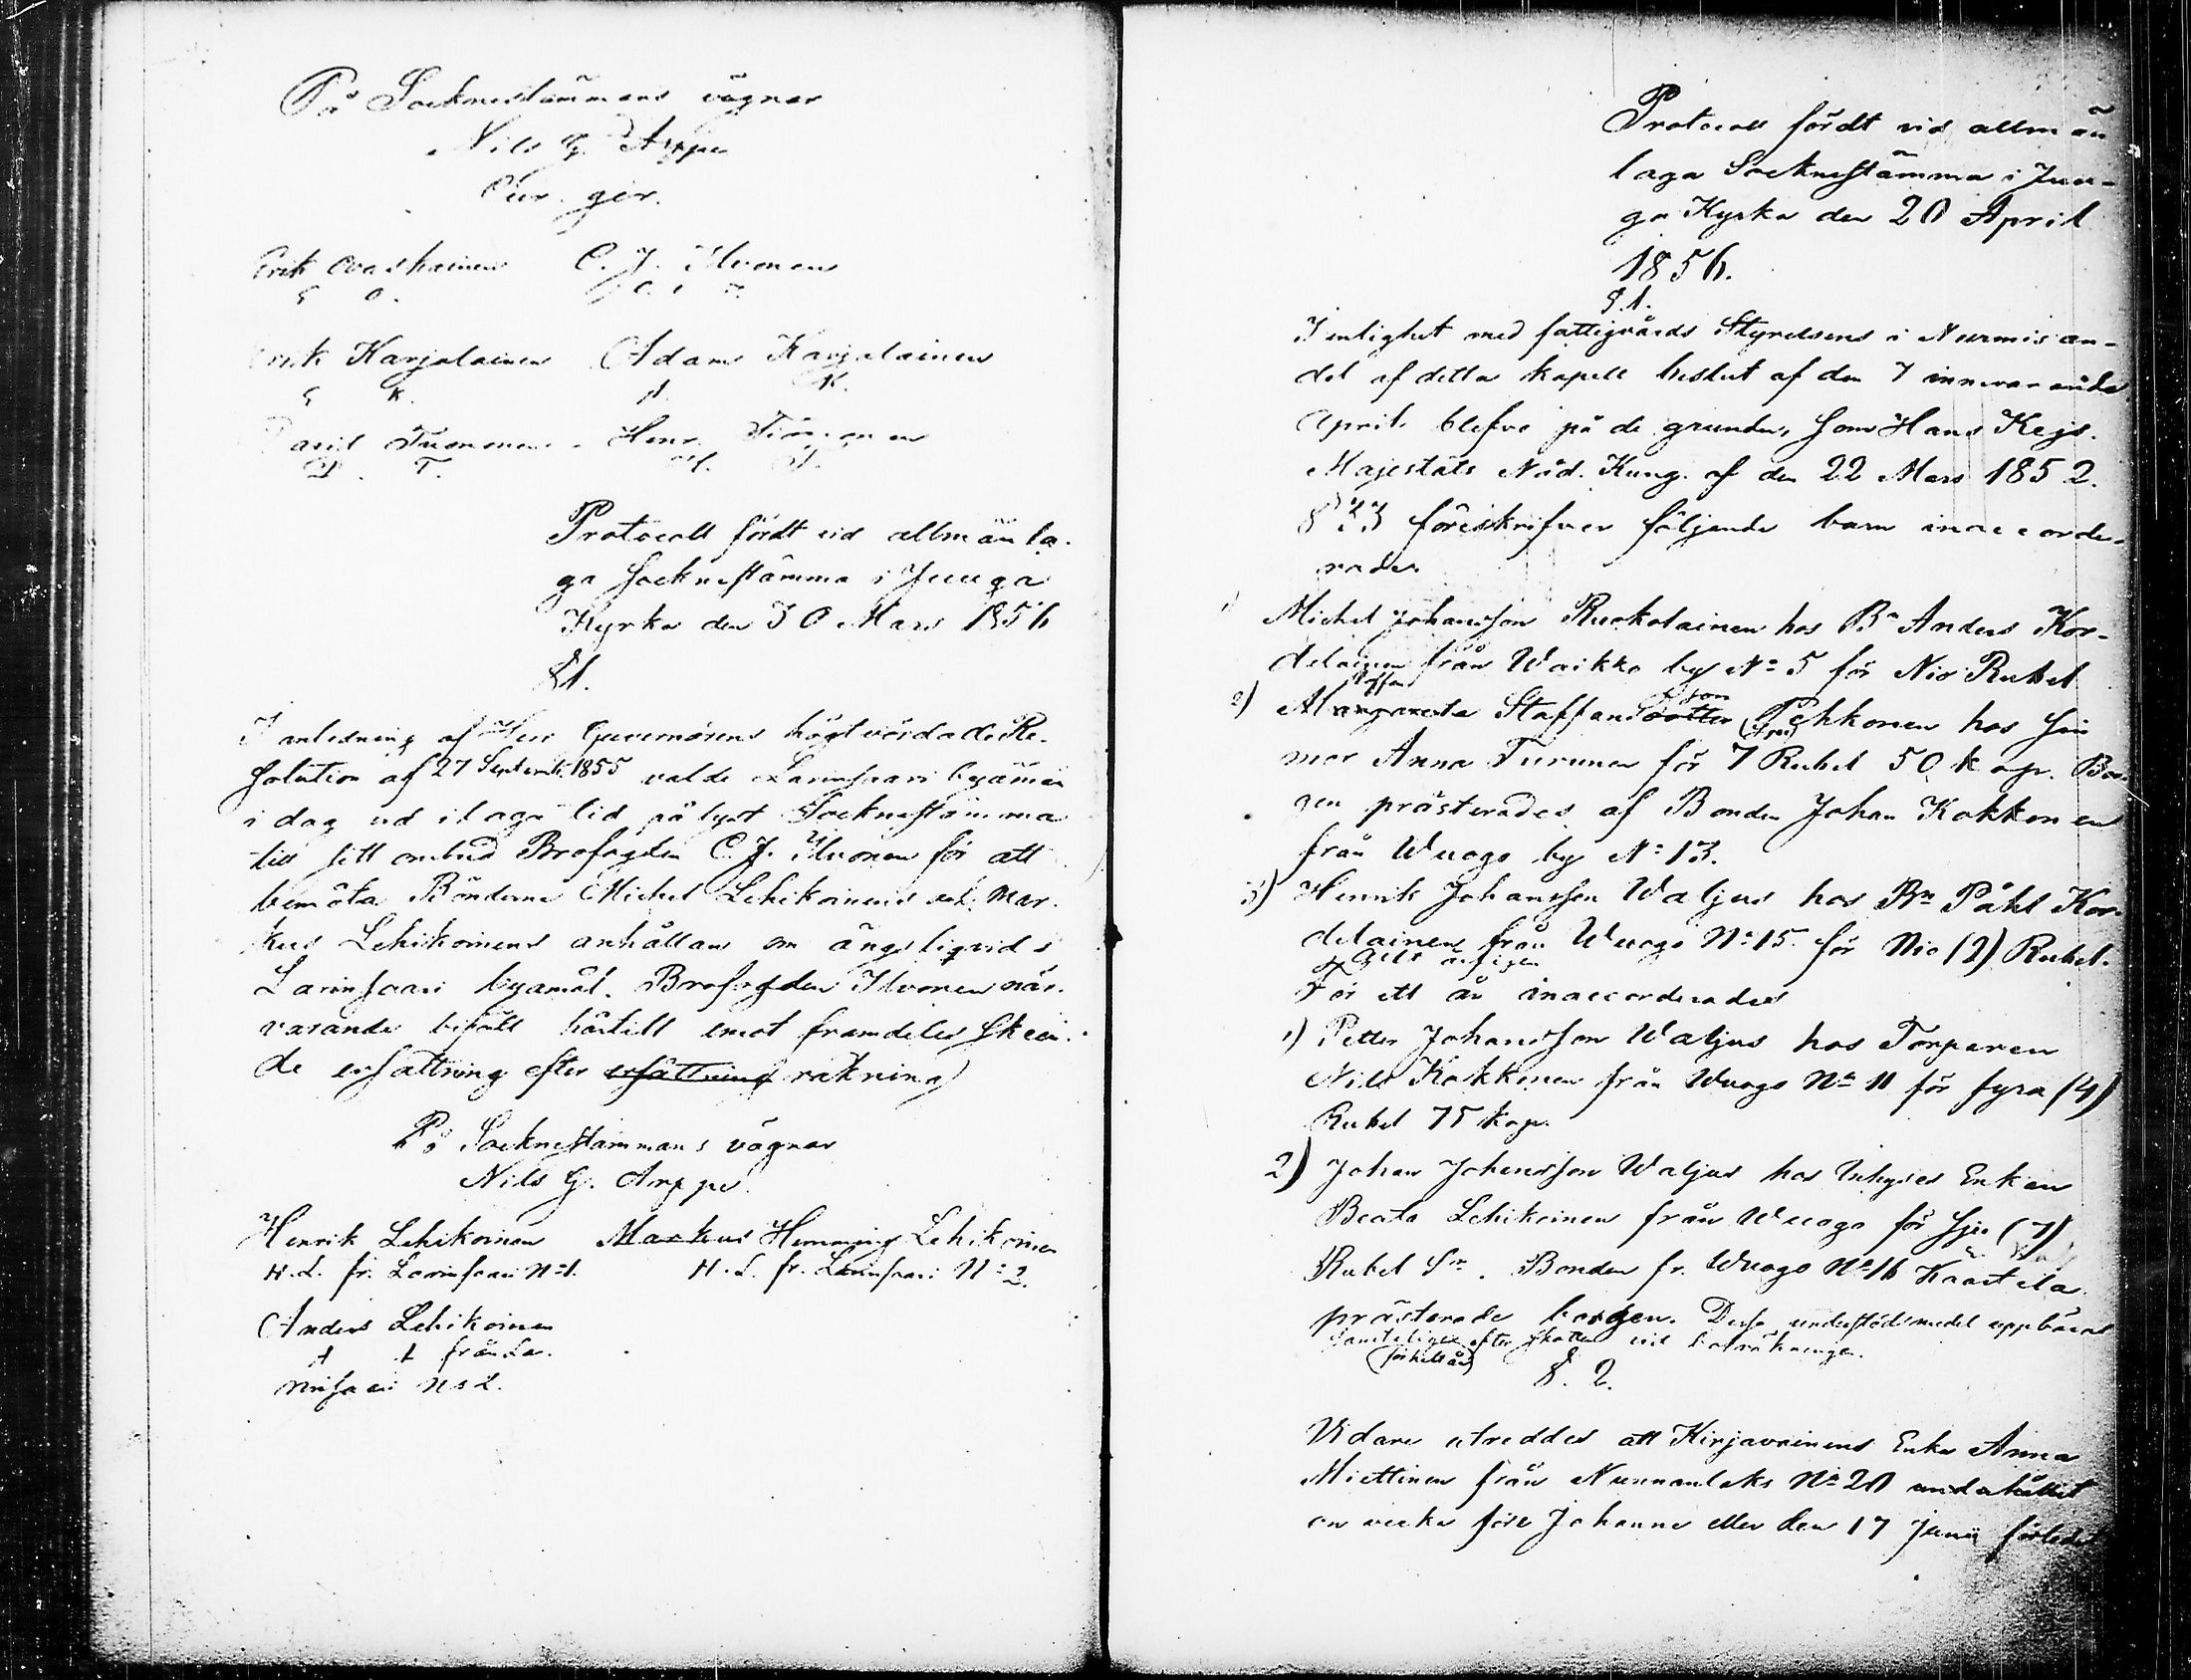 På Socknestämmans vägnar
Nils G. Arppe
Cur. ger.
Erik Ovaskainen C. J. Ilvonen
E O. C. I.
Erik Karjalainen Adam Karjalainen
E K. A. K.
David Turunen Henr.
D. T. H. T.
Protocoll fördt vid allmän la-
ga Socknestämma i Juuga
Kyrka den 30 Mars 1856
§ 1.
I anledning af Herr Guvernörens högtvördade Re-
solution af 27 Septemb. 1855 valde Larinsaari byamän
i dag vid i laga tid pålyst Socknestämma
till sitt ombud Brofogden C. J. Ilvonen för att
bemöta Bönderne Michel Lehikoinens och Mar-
kus Lehikoinens anhållan om ängsliqvid i
Larinsaari byamål. Brofogden Ilvonen när-
varande biföll härtill emot framdeles skeen-
de ersättning efter ersättning räkning
På Socknestämmans vägnar
Nils G. Arppe.
Henrik Lehikoinen Markus Hemming Lehikoinen
H. L. fr. Larinsaari No 1. H. L. fr. Larinsaari No 2.
Anders Lehikoinen
A L från La-
rinsaari No 2.
Protocoll fördt vid allmän
laga Socknestämma i Juu-
ga Kyrka den 20 April
1856.
§. 1.
I enlighet med fattigvårds Styrelsens i Nurmis an-
del af detta kapell beslut af den 7 innevarande
April blefvo på de grunder, som Hans Kejs.
Majestäts Nåd. Kung. af den 22 Mars 1852.
§ 23 föreskrifver följande barn inaccorde-
rade.
1) Michel Johansson Ruokolainen hos Bn Anders Kor-
delainen från Waikko by No 5 för Nio Rubel
Staffan
2) Margareta Staffansdotter son Pehkonen hos sin
mor Anna Turunen för 7 Rubel 50 kop. Bor-
gen prästerades af Bonden Johan Kokkonen
från Wuogo by No 13.
3) Henrik Johansson Waljus hos Bn Påhl Kor-
delainen från Wuogo No 15. för Nio (9) Rubel.
För ett år inaccorderades
1) Petter Johansson Waljus hos Torparen
Nils Kokkonen från Wuogo No 11 för fyra (4)
Rubel 75 kop.
2) Johan Johansson Waljus hos Inhyses Enkan
Beata Lehikoinen från Wuogo för sju (7)
Rubel Sr. Bonden fr. Wuogo No 16 Kaartela
prästerade borgen. Dessa understödsmedel uppbäras
samteligen efter skatten vid
§. 2.
Vidare utreddes att Kirjavainens Enka Anna
Miettinen från Nunnanlaks No 20 underhållit
en vecka före Johanne eller den 17 Junii förledet